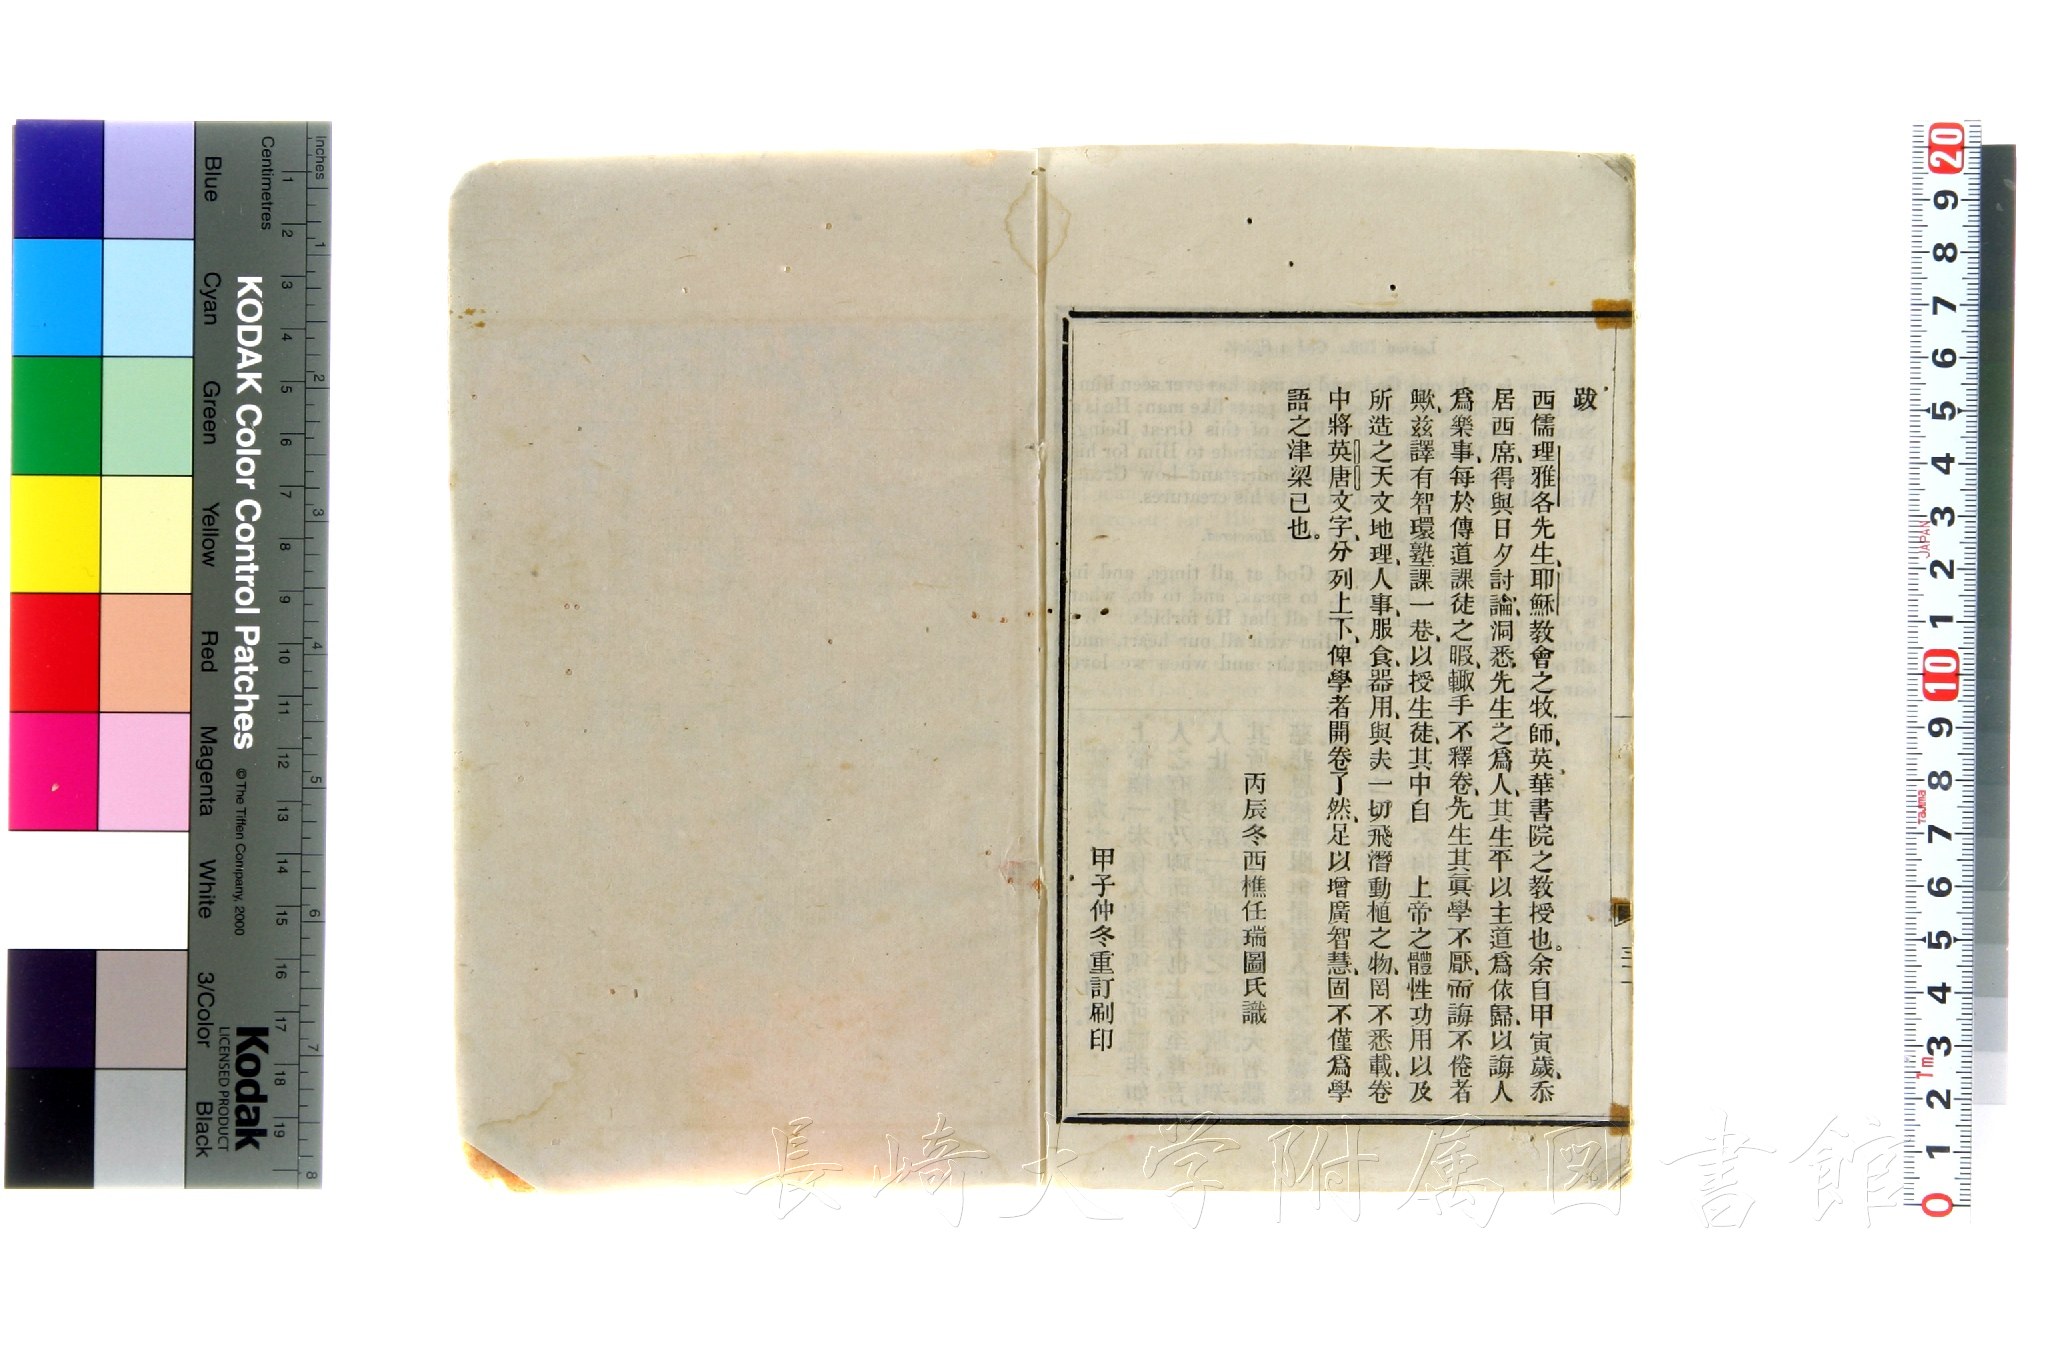 跋
西儒理雅各先生、耶穌教會之牧師、英華書院之教授也。余自甲寅歲、忝
居西席、得與日夕討論、洞悉先生之爲人、其生平以主道爲依歸、以誨人
爲樂事、每於傳道課徒之暇、輙手不釋卷、先生其眞學不厭、而誨不倦者
歟、茲譯有智環塾課一巷、以授生徒、其中自　上帝之體性功用以及
所造之天文地理、人事、服食器用、與夫一切飛潛動植之物、罔不悉載、卷
中將英唐文字、分列上下、俾學者開卷了然、足以增廣智慧、固不僅爲學
語之津梁已也。
丙辰冬西樵任瑞圖氏識
甲子仲冬重訂刷印
長崎大学附属図書館
KODAK Color Control Patches
© The Tiffen Company, 2000
Kodak
LICENSED PRODUCT
Inches 1 2 3 4 5 6 7 8
Centimetres 1 2 3 4 5 6 7 8 9 10 11 12 13 14 15 16 17 18 19
Blue Cyan Green Yellow Red Magenta White 3/Color Black
20 9 8 7 6 5 4 3 2 1 10 9 8 7 6 5 4 3 2 1 0
JAPAN